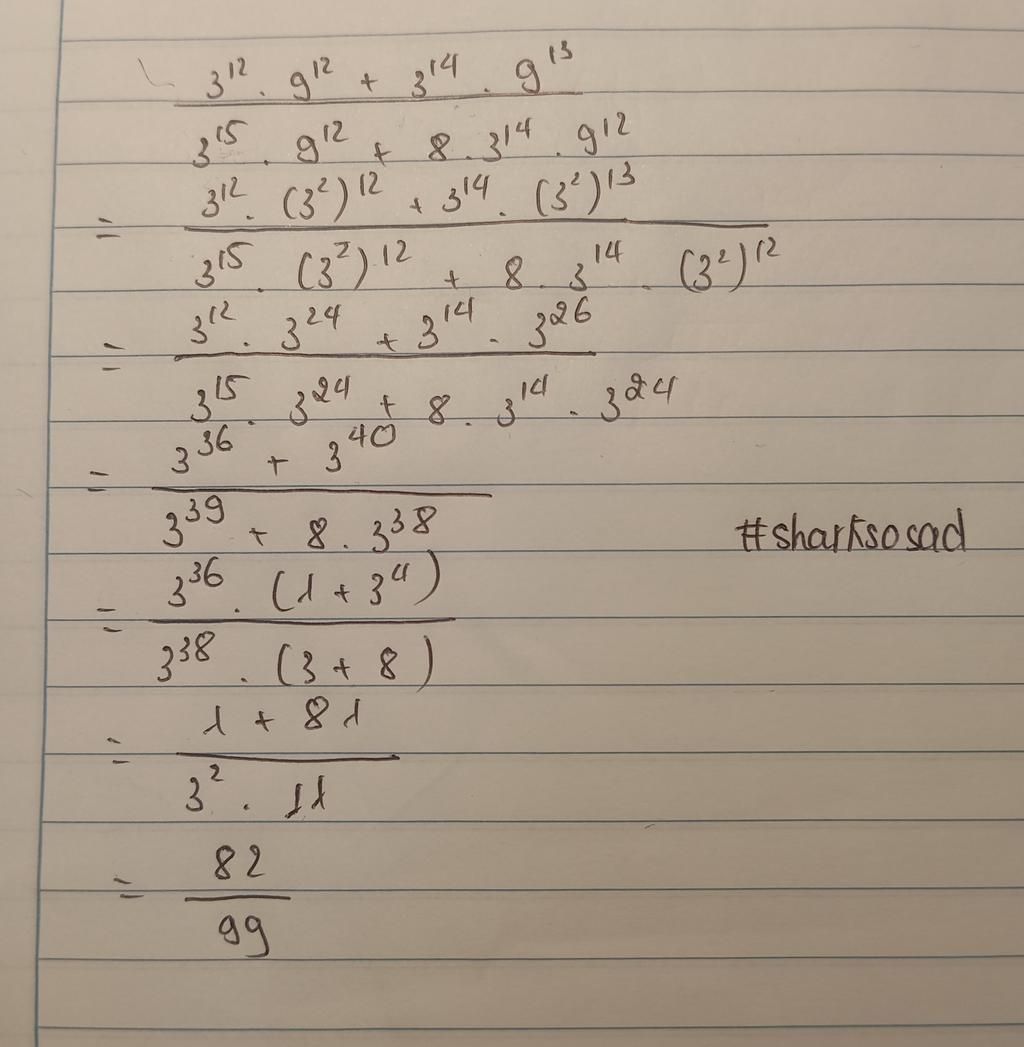 3¹² . 9¹² + 3¹⁴ . 9¹³
3¹⁵ . 9¹² + 8 . 3¹⁴ . 9¹²
= 3¹² . (3²)¹² + 3¹⁴ . (3²)¹³
3¹⁵ . (3²)¹² + 8 . 3¹⁴ . (3²)¹²
= 3¹² . 3²⁴ + 3¹⁴ . 3²⁶
3¹⁵ . 3²⁴ + 8 . 3¹⁴ . 3²⁴
= 3³⁶ + 3⁴⁰
3³⁹ + 8 . 3³⁸
#sharksosad
= 3³⁶ . (1 + 3⁴)
3³⁸ . (3 + 8)
= 1 + 81
3² . 11
= 82
99